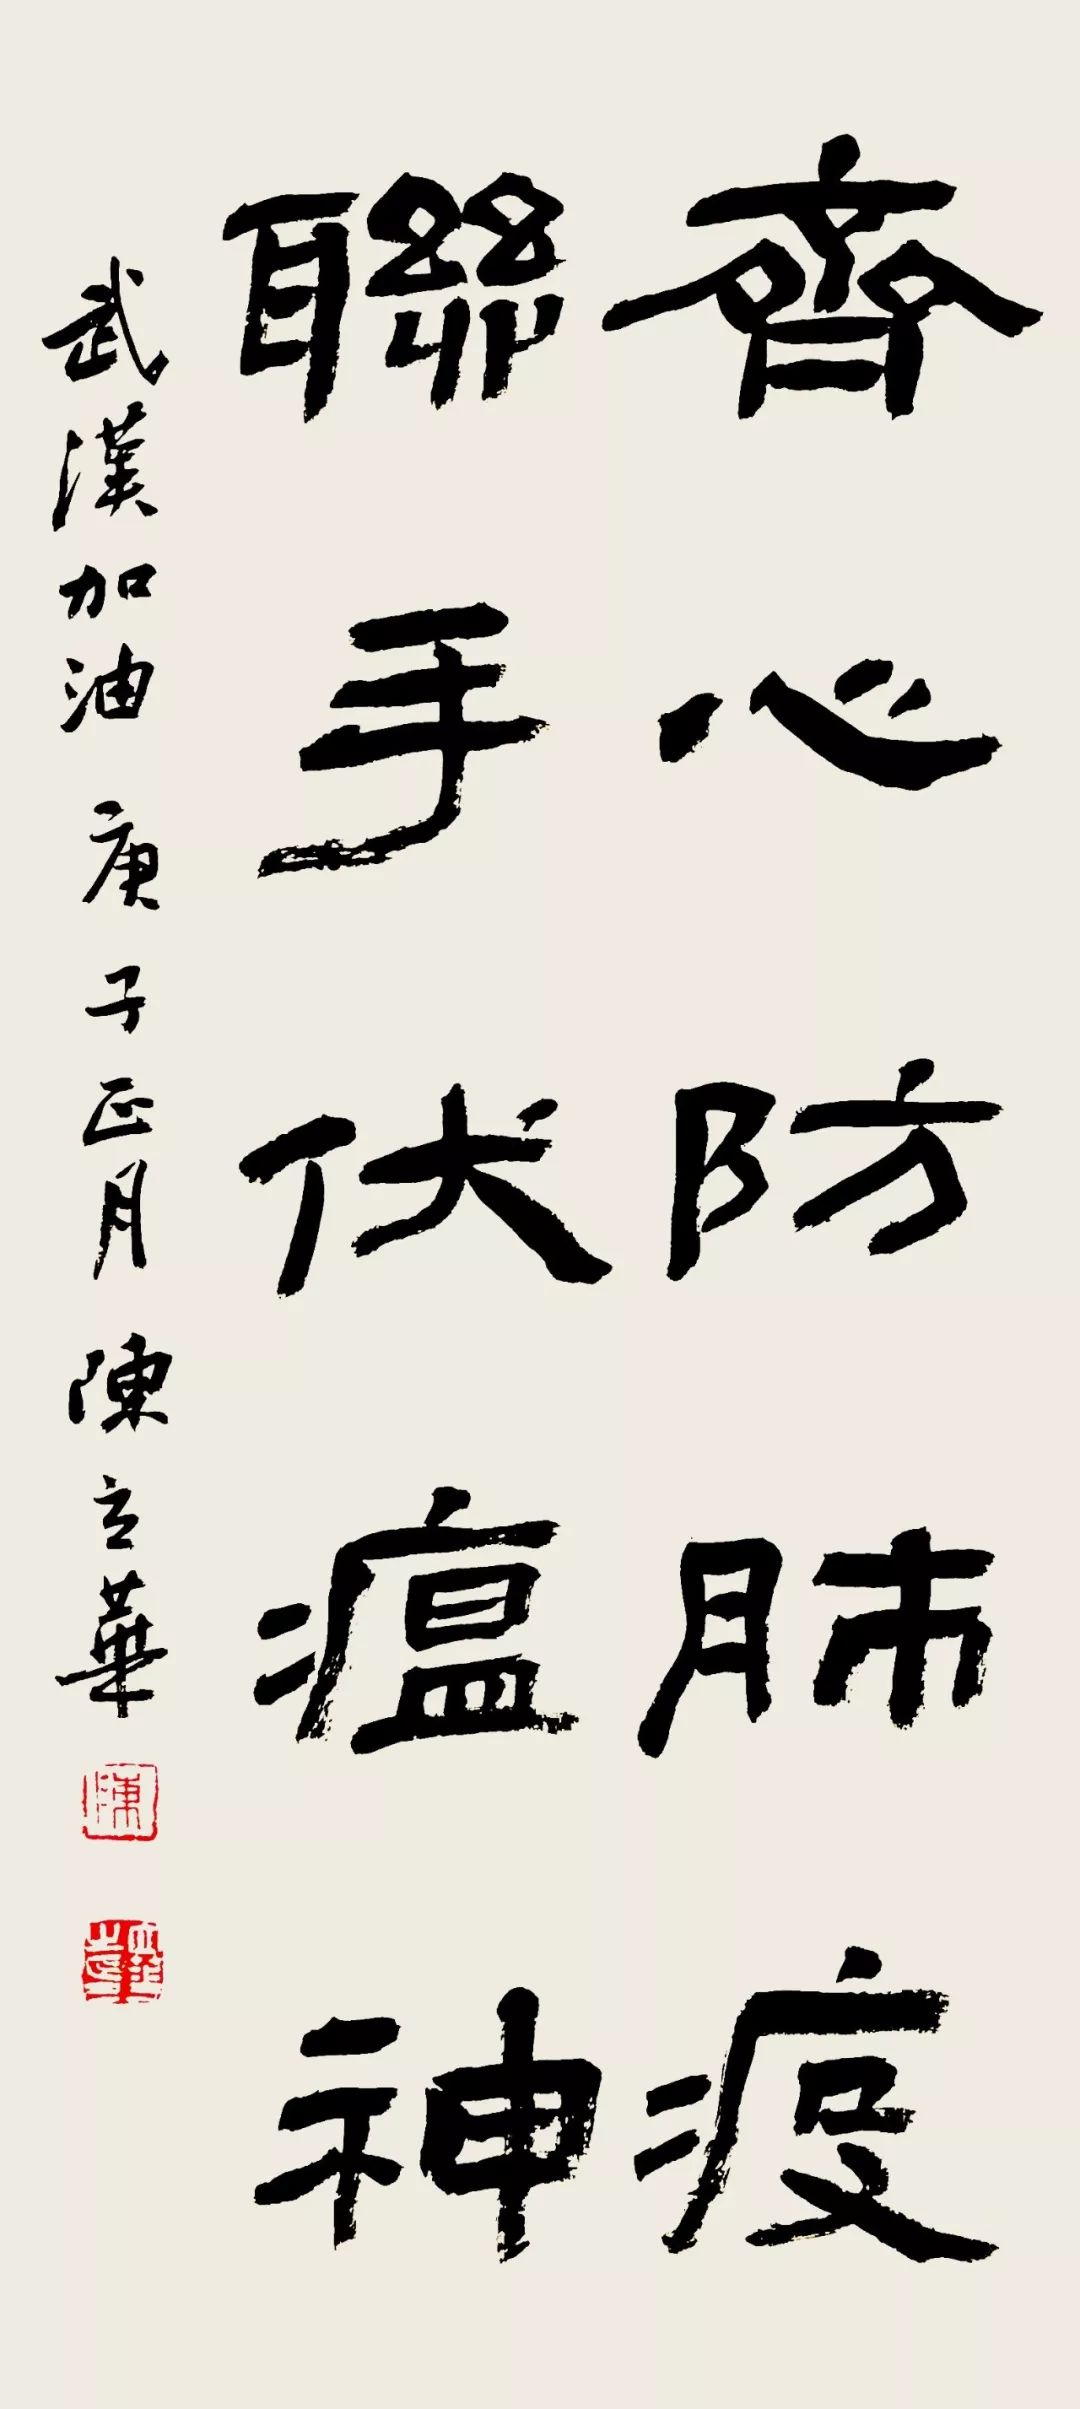 齊心防肺疫
聯手伏瘟神
武漢加油 庚子正月 陳立華
陳